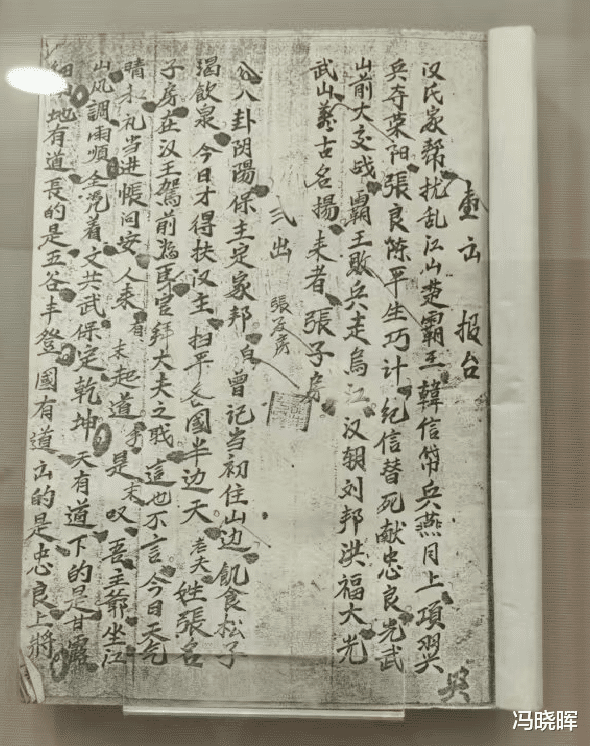 壹出 报台
汉氏家帮扰乱江山楚霸王韓信带兵燕月上項翼
兵夺荣阳張良陈平生巧计纪信替死献忠良光武
山前大交战霸王敗兵走烏江汉朝刘邦洪福大光
武山義古名揚来者張子房
弍出 張子房
八卦阴陽保主定家邦 曾记当初住山边飢食松子
渴飲泉今日才得扶汉主扫平各國半边天老夫姓張名
子房在汉王駕前為官拜大夫之职這也不言今日天气
晴和礼当進帳问安人来有末起道手是末叹吾主爷坐江
山风調雨順全凭着文共武保定乾坤天有道下的是甘露
地有道長的是五谷丰登國有道出的是忠良上將
冯晓晖